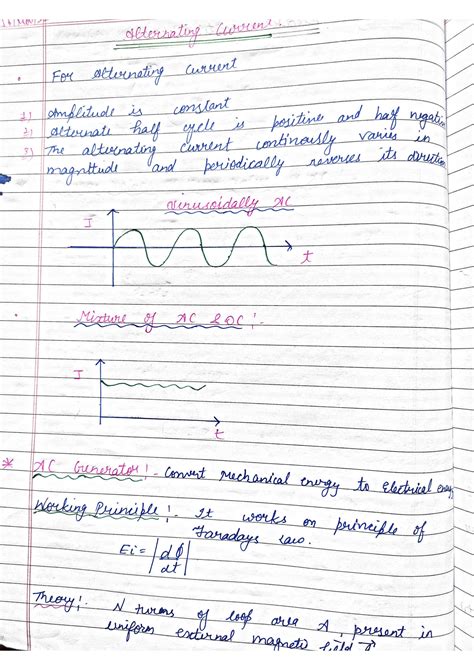 Alternating Current
For Alternating Current
1) Amplitude is constant
2) Alternate half cycle is positive and half negative
3) The alternating current continously varies in
magnitude and periodically reverses its direction
Sinusoidally AC
I
t
Mixture of AC & DC !-
I
t
* AC Generator !- Convert Mechanical energy to Electrical energy
Working Principle !- It works on principle of
Faradays Law.
Ei = |dϕ/dt|
Theory !- N turns of loop area A, present in
uniform external magnetic field B